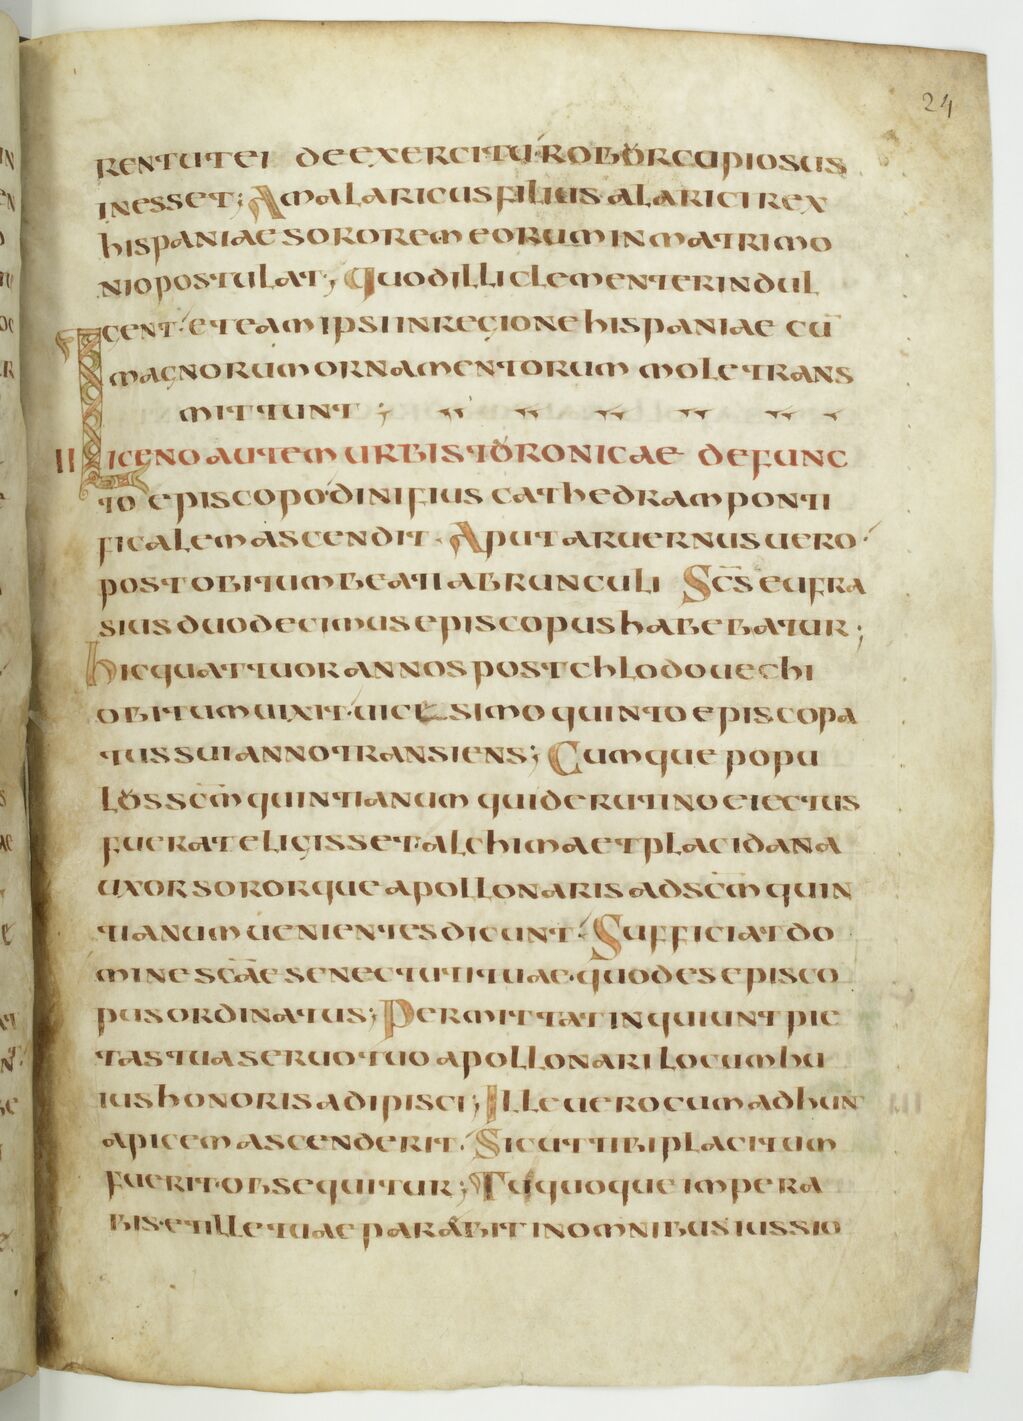 24
rentut ei de exercitu robor copiosus
inesset; Amalaricus filius alarici rex
hispaniae sororem eorum in matrimo
nio postulat; quod illi clementer indul
gent· et eam ipsi in regione hispaniae cū
magnorum ornamentorum mole trans
mittunt;
II Liceno autem urbis toronicae defunc
to episcopo· dinifius cathedram ponti
ficalem ascendit· Aput aruernus uero·
post obitum beati abrunculi Scs eufra
sius duodecimus episcopus habebatur;
hic quattuor annos post chlodouechi
obitum uixit· uicisimo quinto episcopa
tus sui anno transiens; Cumque popu
lus scm̄ quintianum qui de rutino eiectus
fuerat eligisset· alchima et placidana
uxor sororque apollonaris ad scm̄ quin
tianum uenientes dicunt· Sufficiat do
mine scae senectuti tuae· quod es episco
pus ordinatus; Permittat inquiunt pie
tas tua seruo tuo apollonari locum hu
ius honoris adipisci; Ille uero cum ad hun
apicem ascenderit· Sicut tibi placitum
fuerit· obsequitur; Tu quoque impera
bis· et ille tuae parabit in omnibus iussio